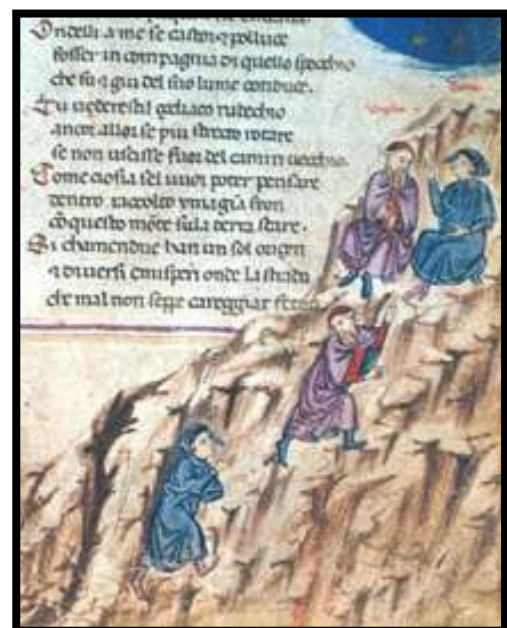 Ondelli a me se castor e polluce
fosser in compagnia di quello specchio
che su e giu del suo lume conduce.
Tu vederesti l çodiaco rubechio
ancor allorse piu strecto rotare
se non uscisse fuor del camin vecchio.
Come cio sia sel vuoi poter pensare
dentro racolto ymagina sion
cō questo mōte sula terra stare.
Si chamendue han un sol
e diversi emisperi onde la strada
che mal non seppe careggiar